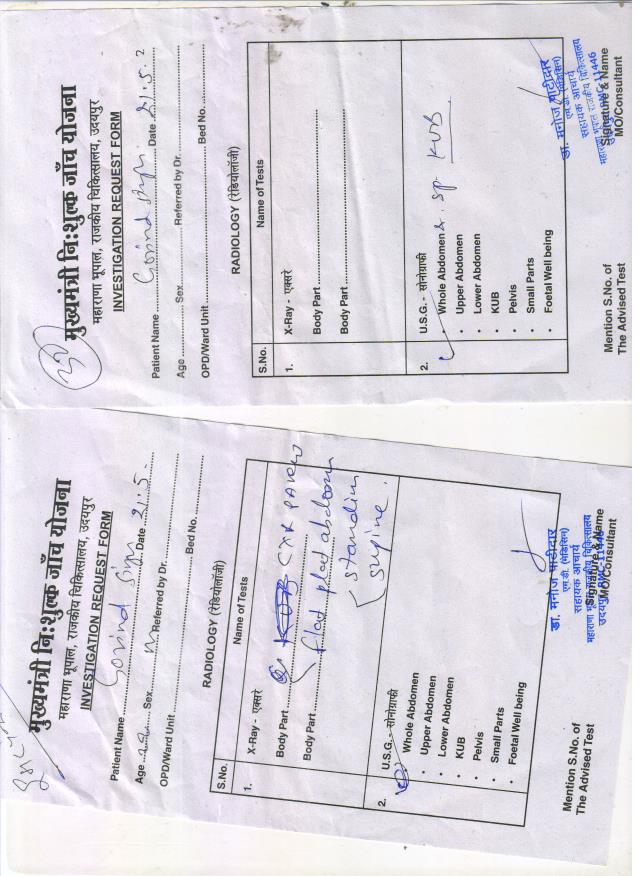 मुख्यमंत्री निःशुल्क जाँच योजना
महाराणा भूपाल, राजकीय चिकित्सालय, उदयपुर
INVESTIGATION REQUEST FORM
Patient Name Govind Date 21.5.2
Age Sex Referred by Dr.
OPD/Ward Unit Bed No.
RADIOLOGY (रेडियोलॉजी)
S.No. Name of Tests
1. X-Ray - एक्सरे
Body Part
Body Part
2. U.S.G. - सोनोग्राफी
• Whole Abdomen & sp KUB
• Upper Abdomen
• Lower Abdomen
• KUB
• Pelvis
• Small Parts
• Foetal Well being
डा. मनोज पाटीदार
एम.डी. (मेडिसिन)
सहायक आचार्य
महाराणा भूपाल राजकीय चिकित्सालय
11446
Signature & Name
MO/Consultant
Mention S.No. of
The Advised Test
मुख्यमंत्री निःशुल्क जाँच योजना
महाराणा भूपाल, राजकीय चिकित्सालय, उदयपुर
INVESTIGATION REQUEST FORM
Patient Name Govind Date 21.5.
Age Sex m Referred by Dr.
OPD/Ward Unit Bed No.
RADIOLOGY (रेडियोलॉजी)
S.No. Name of Tests
1. X-Ray - एक्सरे
Body Part KUB CXR PA view
Body Part flat plate abdomen
standing
supine.
2. U.S.G. - सोनोग्राफी
• Whole Abdomen
• Upper Abdomen
• Lower Abdomen
• KUB
• Pelvis
• Small Parts
• Foetal Well being
डा. मनोज पाटीदार
एम.डी. (मेडिसिन)
सहायक आचार्य
महाराणा भूपाल, राजकीय चिकित्सालय
उदयपुर 11446
Signature & Name
MO/Consultant
Mention S.No. of
The Advised Test